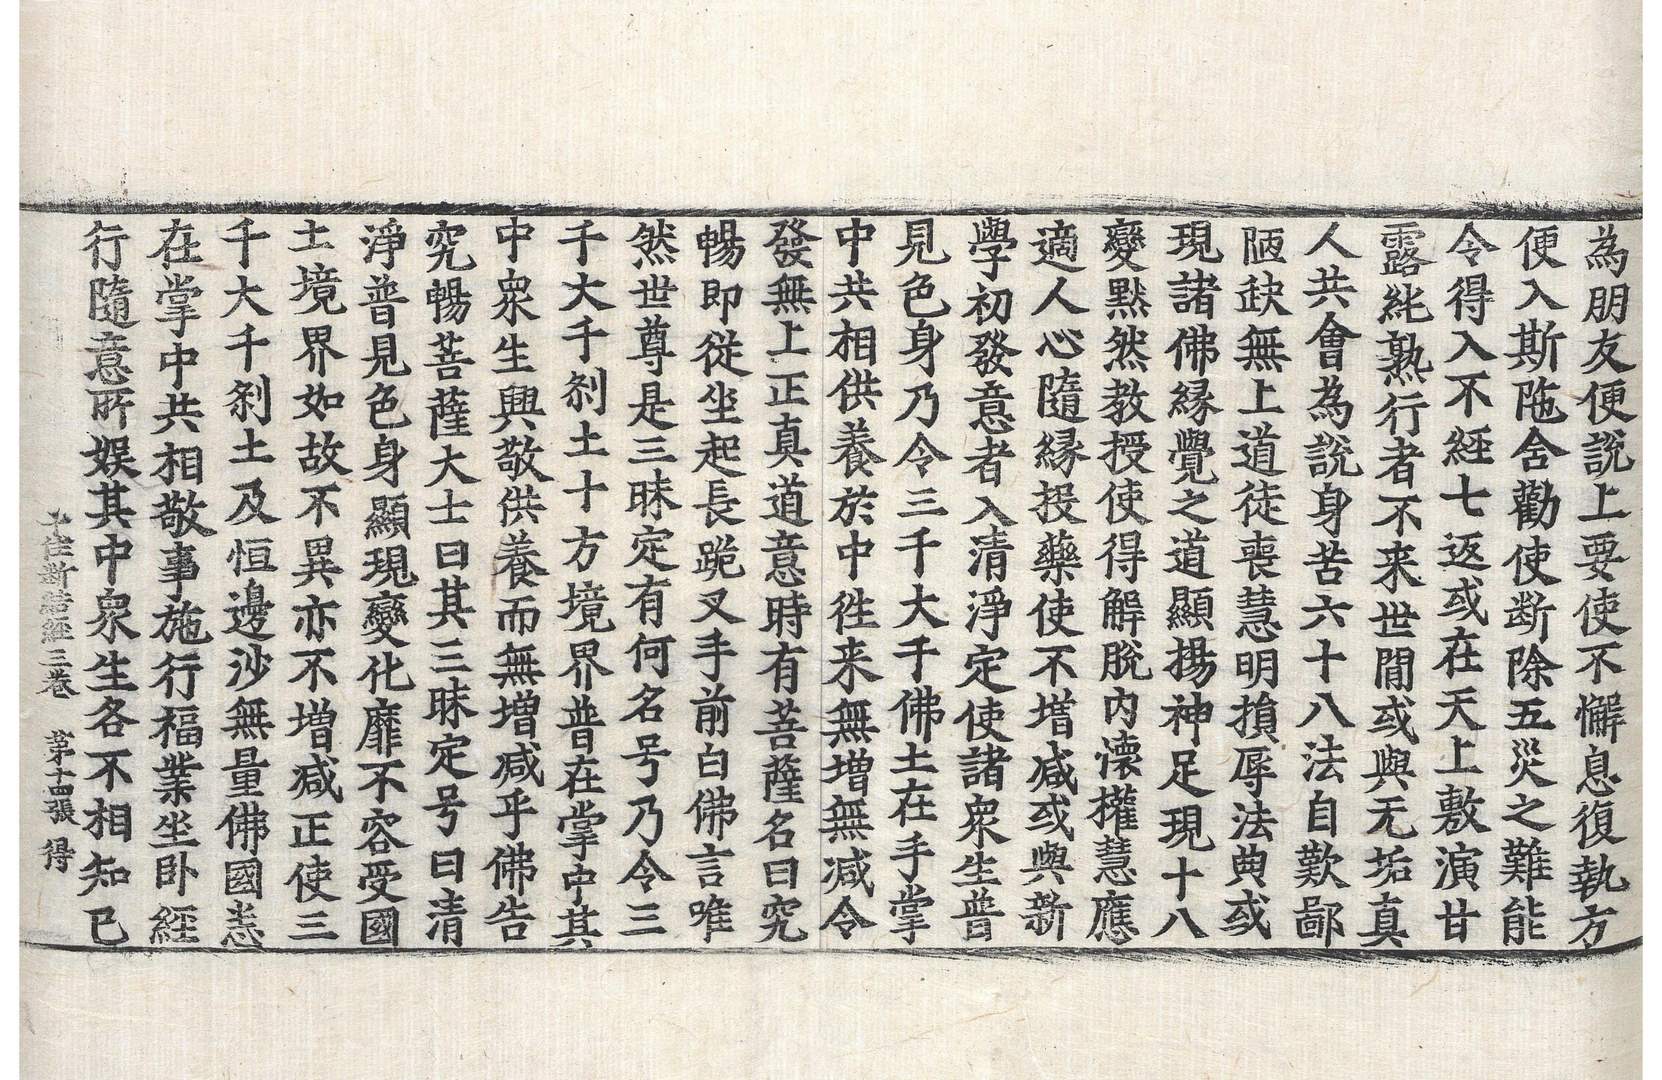 為朋友便說上要使不懈息復執方
便入斯陁舍勸使断除五災之難能
令得入不經七返或在天上敷演甘
露純熟行者不来世閒或與无垢真
人共會為說身苦六十八法自歎鄙
陋缺無上道徒喪慧明損辱法典或
現諸佛緣覺之道顯揚神足現十八
變黙然教授使得解脫内懷權慧應
適人心隨緣投藥使不增减或與新
學初發意者入清淨定使諸衆生普
見色身乃令三千大千佛土在手掌
中共相供養於中徃来無增無减令
發無上正真道意時有菩薩名曰究
暢即從坐起長跪叉手前白佛言唯
然世尊是三昧定有何名号乃令三
千大千刹土十方境界普在掌中其
中衆生興敬供養而無增减乎佛告
究暢菩薩大士曰其三昧定号曰清
淨普見色身顯現變化靡不容受國
土境界如故不異亦不增减正使三
千大千刹土及恒邊沙無量佛國恚
在掌中共相敬事施行福業坐卧經
行隨意所娱其中衆生各不相知已
十住断結經三卷 第十四張 得